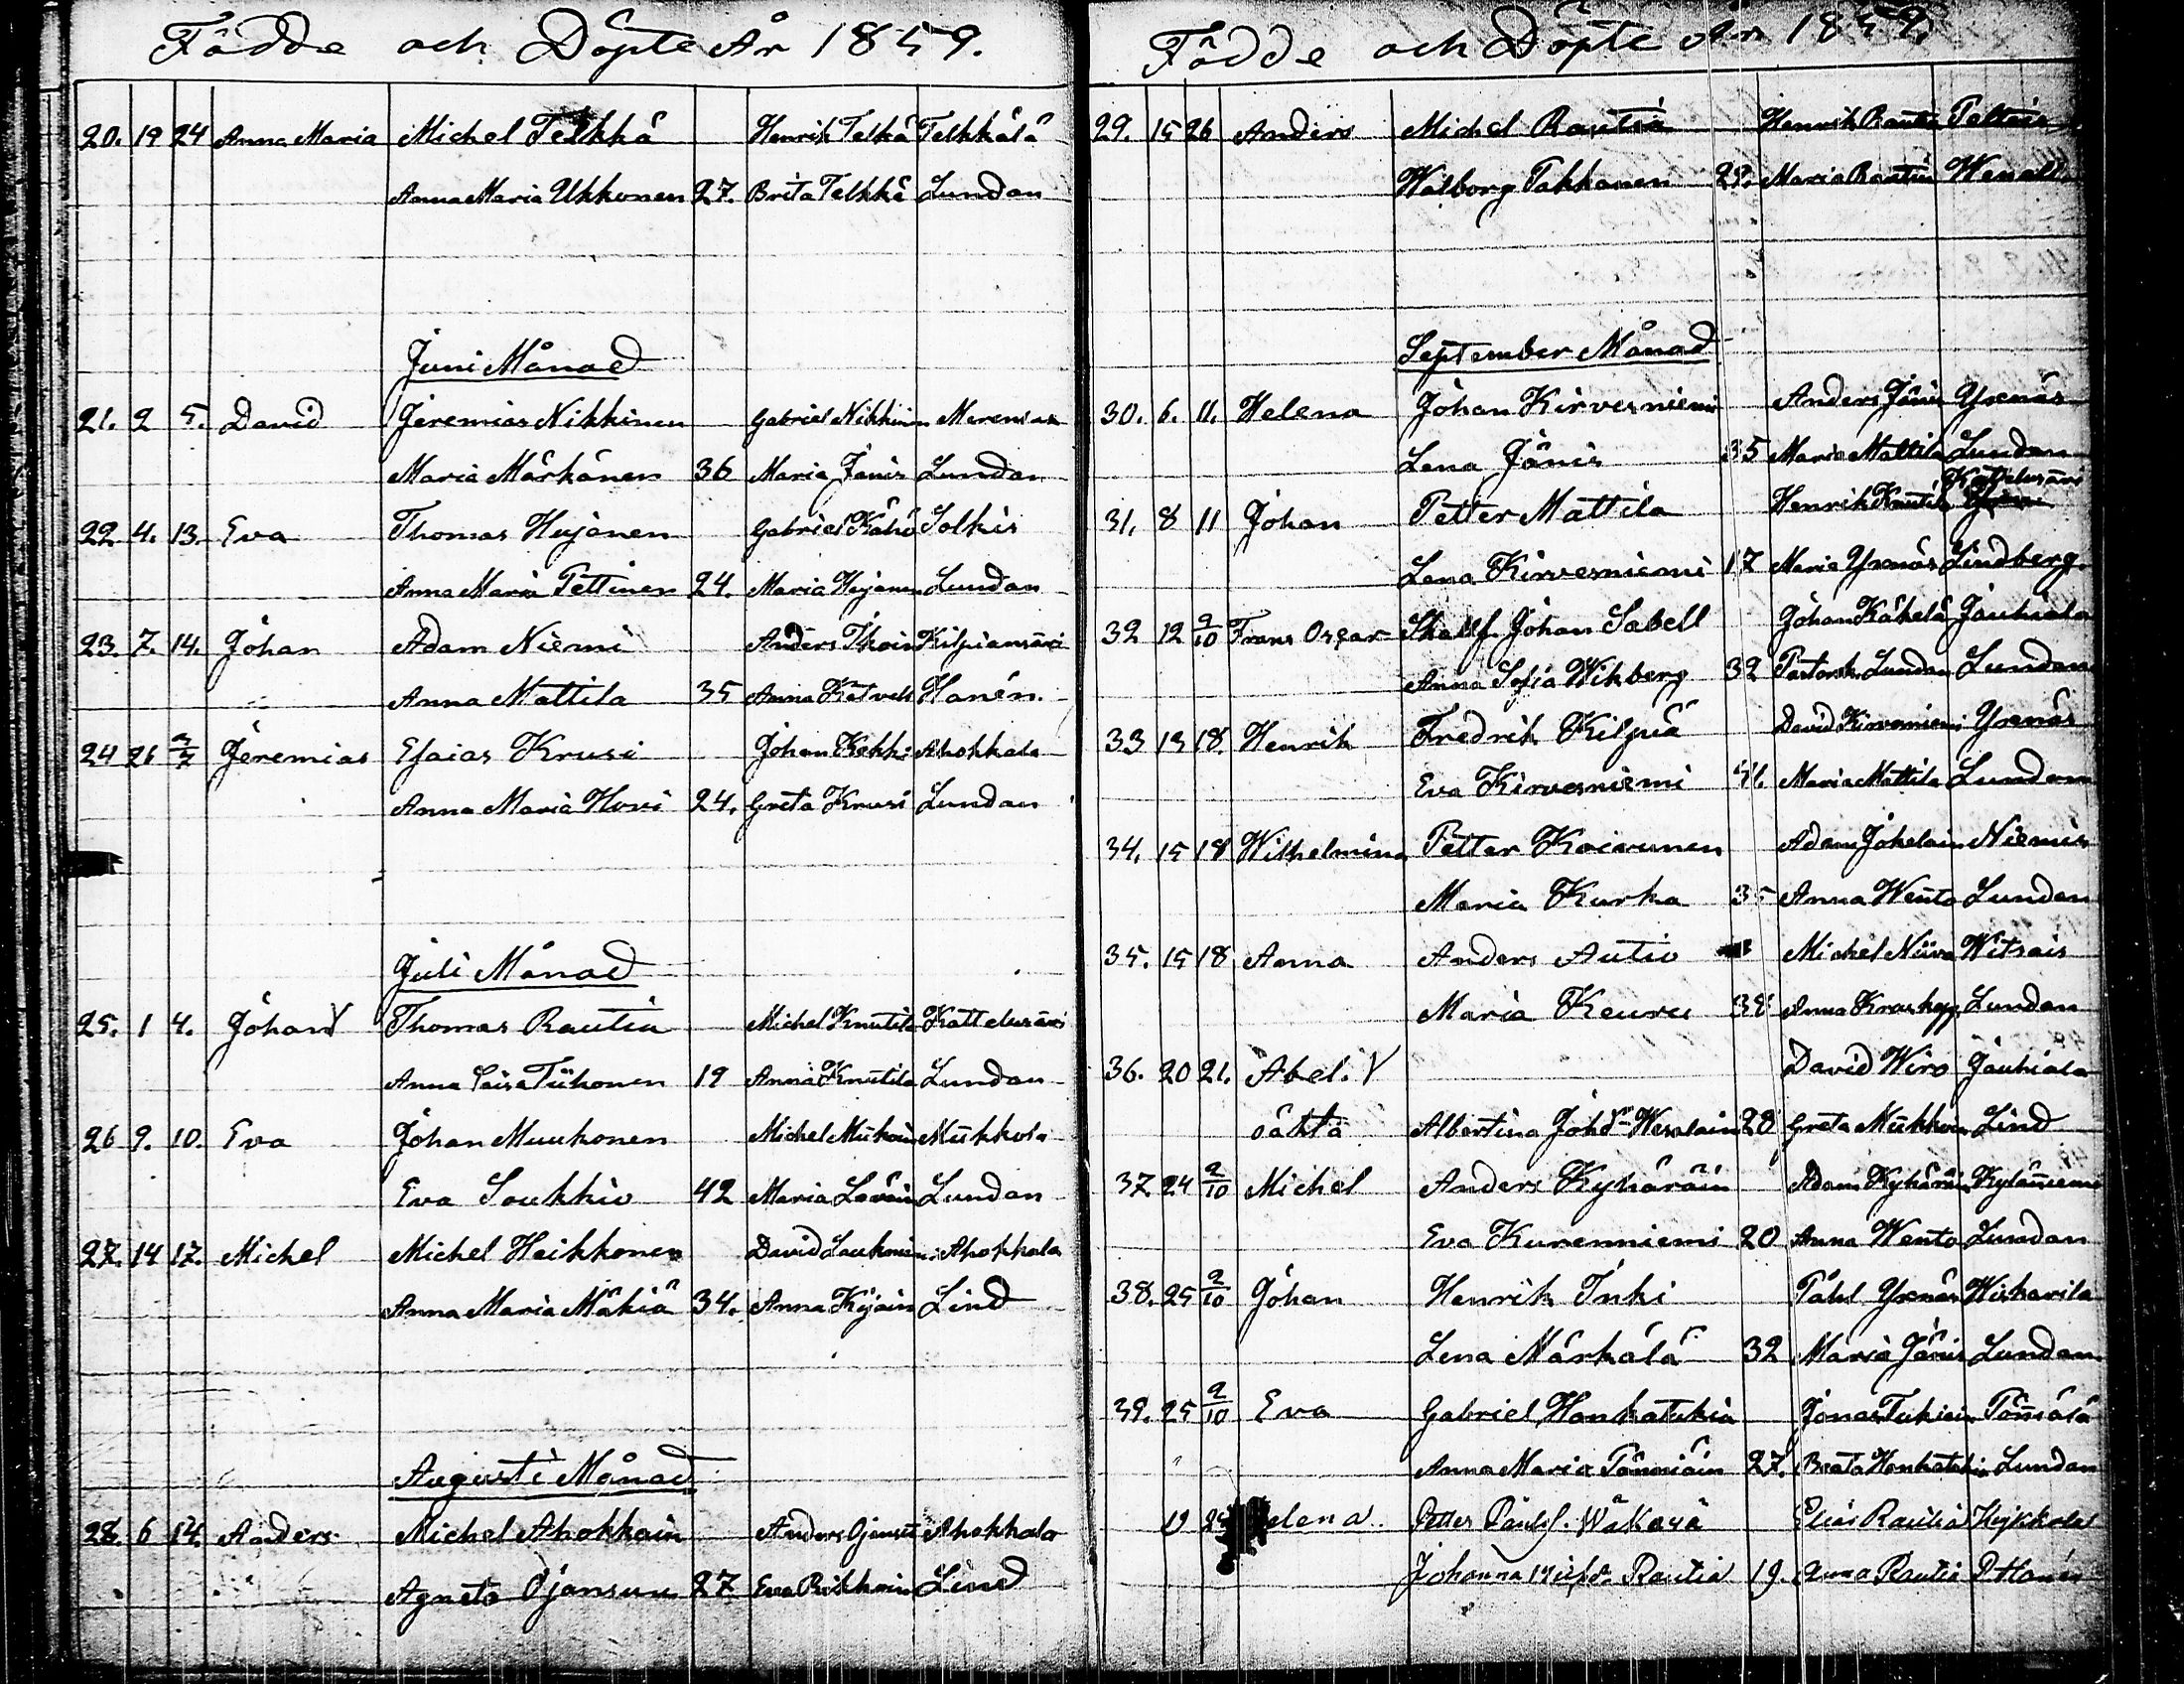 Födde och Döpte År 1859.
20. 19 24 Anna Maria Michel Telkkä Henrik Telkä Telkkälä
Anna Maria Ukkonen 27. Brita Telkkä Lundan
Juni Månad
21. 2 5. David Jeremias Nikkinen Gabriel Nikkinen
Maria Märkänen 36 Maria Jänis Lundan
22 4. 13. Eva Thomas Hujanen Gabriel Kähö Solkis
Anna Maria Pettinen 24. Maria Hujanen Lundan
23. 7. 14. Johan Adam Niemi Anders Kilpiansaari
Anna Mattila 35 Anna Hanén.
24 26 3/7 Jeremias Esaias Krusi Johan Kekki Ahokkala
Anna Maria Hovi 24. Greta Krusi Lundan
Juli Månad
25. 1 4. Johan V Thomas Rautia Michel Knutila Kattelusaari
Anna Caisa Tiihonen 19 Anna Knutila Lundan
26 9. 10. Eva Johan Muukonen Michel Mukkola
Eva Soukkio 42 Maria Lundan
27. 14 17. Michel Michel Heikkonen David Ahokkala
Anna Maria Mäkiä 34. Anna Lind
Augusti Månad
28. 6 14. Anders Michel Ahokkain Anders Ojansu Ahokkala
Agneta Ojansuu 27 Eva Lind
Födde och Döpte År 1859.
29. 15 26 Anders Michel Rautia Henrik Rautia
Walborg Pakkanen 29. Maria Rautia
September Månad
30. 6. 11. Helena Johan Kirvesniemi Anders Jänis Yxenäs
Lena Jänis 35 Maria Mattila Lundan
Kattelusaari
31. 8 11 Johan Petter Mattila Henrik Knutila
Lena Kirvesniemi 17 Maria Yxenäs Lindberg.
32 12 2/10 Frans Oscar Johan Sabell Johan Kähelä Jauhiala
Anna Sofia Wikberg 32 Pastorsk. Lundan Lundan
33 13 18. Henrik Fredrik Kilpiä David Kirvesniemi Yxenäs
Eva Kirvesniemi 41. Maria Mattila Lundan
34. 15 18 Wilhelmina Petter Koivunen Adam Niemis
Maria Kurka 35 Anna Wento Lundan
35. 15 18 Anna Anders Autio Michel Niiva Witsais
Maria Keuru 38 Anna Lundan
36. 20 21. Abel. V David Wiro Jauhiala
oäkta Albertina 28 Greta Lind
37 24 2/10 Michel Anders Kyhäräin Adam Kyhäräin Kyläniemi
Eva Kurenniemi 20 Anna Wento Lundan
38. 25 2/10 Johan Henrik Inki Påhl Yxenäs Wiskarila
Lena Märkälä 32 Maria Jänis Lundan
39. 25 2/10 Eva Gabriel Honkatukia Jonas
Anna Maria 27. Beata Honkatukia Lundan
19 Helena. Petter Elias Rautia
Johanna Rautia 19. Anna Rautia